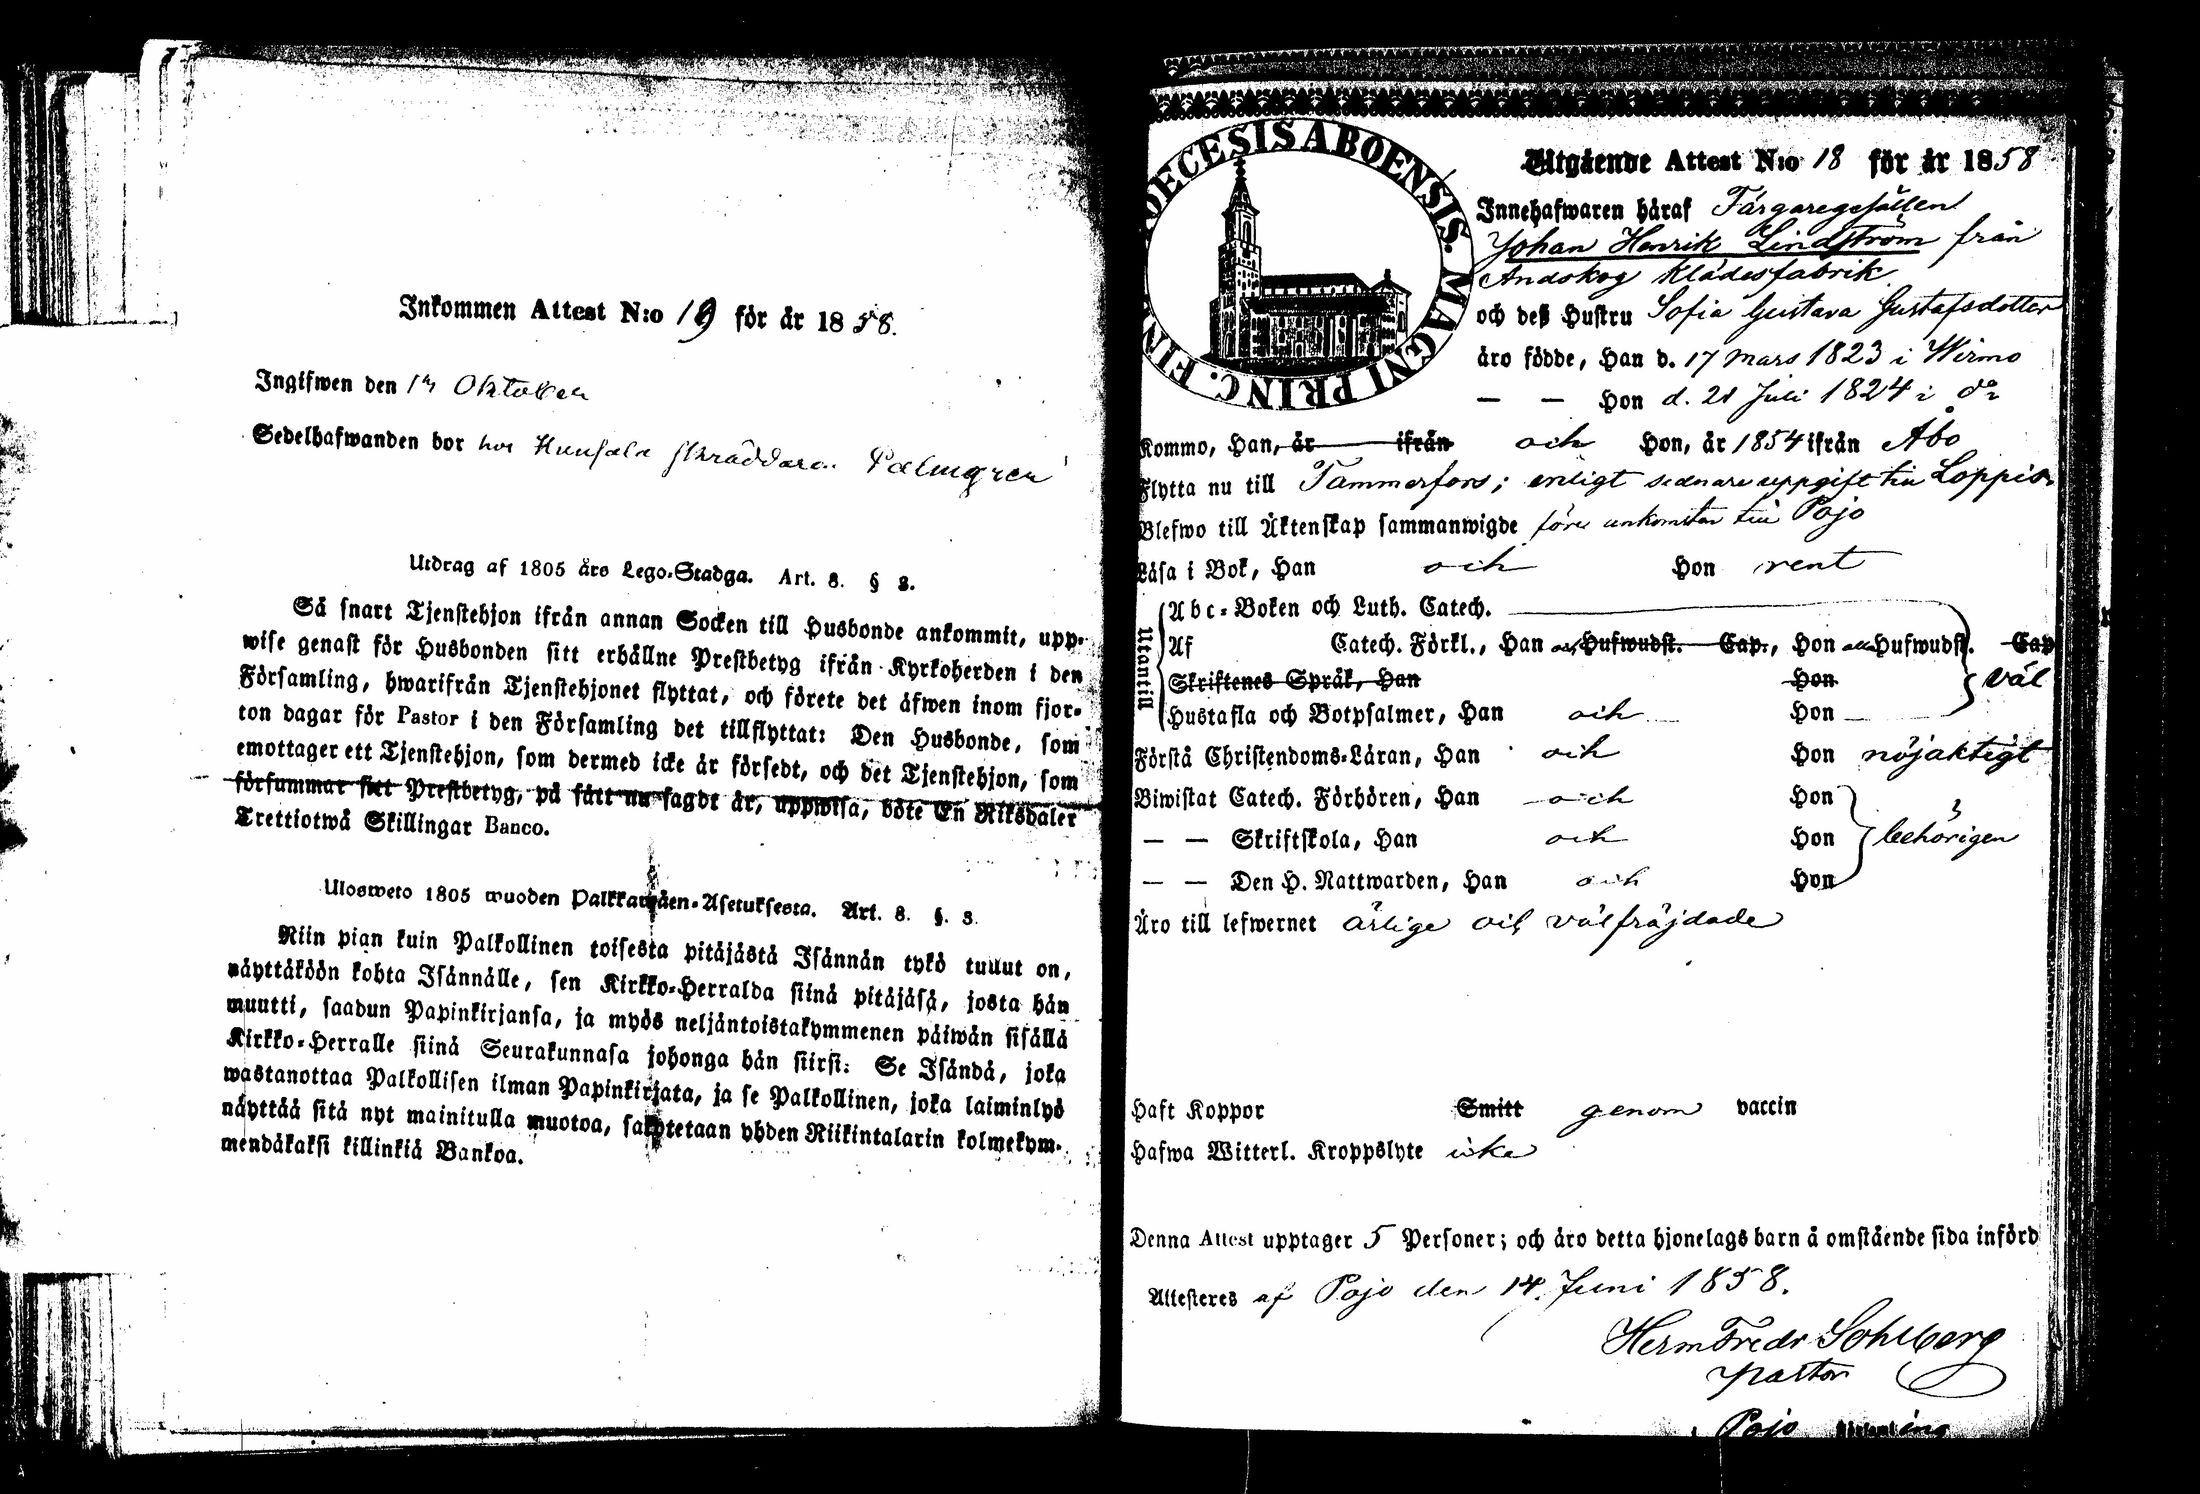 Inkommen Attest N:o 19 för år 1858.
Ingifwen den Oktober
Sedelhafwanden bor hos skräddaren Palmgren
Utdrag af 1805 års Lego-Stadga. Art. 8. § 8.
Så snart Tjenstehjon ifrån annan Socken till Husbonde ankommit, upp-
wise genast för Husbonden sitt erhållne Prestbetyg ifrån Kyrkoherden i den
Församling, hwarifrån Tjenstehjonet flyttat, och förete det äfwen inom fjor-
ton dagar för Pastor i den Församling det tillflyttat: Den Husbonde, som
emottager ett Tjenstehjon, som dermed icke är försedt, och det Tjenstehjon, som
försummar sitt Prestbetyg, på sätt nu sagdt är, uppwisa, böte En Riksdaler
Trettiotwå Skillingar Banco.
Ulosweto 1805 wuoden Palkkawäen-Asetuksesta. Art. 8. §. 8.
Niin pian kuin Palkollinen toisesta pitäjästä Isännän tykö tullut on,
näyttäköön kohta Isännälle, sen Kirkko-Herralda siinä pitäjäsä, josta hän
muutti, saadun Papinkirjansa, ja myös neljäntoistakymmenen päiwän sisällä
Kirkko-Herralle siinä Seurakunnasa johonga hän siirsi: Se Isändä, joka
wastanottaa Palkollisen ilman Papinkirjata, ja se Palkollinen, joka laiminlyö
näyttää sitä nyt mainitulla muotoa, sakotetaan yhden Riikintalarin kolmekym-
mendäkaksi killinkiä Bankoa.
DIOECESIS ABOENSIS. MAGNI PRINC. FIN
Utgående Attest N:o 18 för år 1858
Innehafwaren häraf Färgaregesällen
Johan Henrik Lindström från
Andskog Klädesfabrik
och deß Hustru Sofia Gustava Gustafsdotter
äro födde, Han d. 17 Mars 1823 i Wirmo
— — Hon d. 21 Juli 1824 i do
Kommo, Han, år ifrån och Hon, år 1854 ifrån Åbo
Flytta nu till Tammerfors; enligt sednare uppgift till Loppis
Blefwo till Äktenskap sammanwigde före ankomsten till Pojo
Läsa i Bok, Han och Hon rent
Utantill
Abc-Boken och Luth. Catech.
Af Catech. Förkl., Han och Hufwudst. Cap., Hon alla Hufwudst. Cap
Skriftenes Språk, Han Hon väl
Hustafla och Botpsalmer, Han och Hon
Förstå Christendoms-Läran, Han och Hon nöjaktigt
Biwistat Catech. Förhören, Han och Hon
— — Skriftskola, Han och Hon behörigen
— — Den H. Nattwarden, Han och Hon
Äro till lefwernet ärlige och välfräjdade
Haft Koppor Smitt genom vaccin
Hafwa Witterl. Kroppslyte icke
Denna Attest upptager 5 Personer; och äro detta hjonelags barn å omstående sida införd
Attesteres af Pojo den 14. Juni 1858.
Herm Fredr Sohlberg
Pastor
Pojo